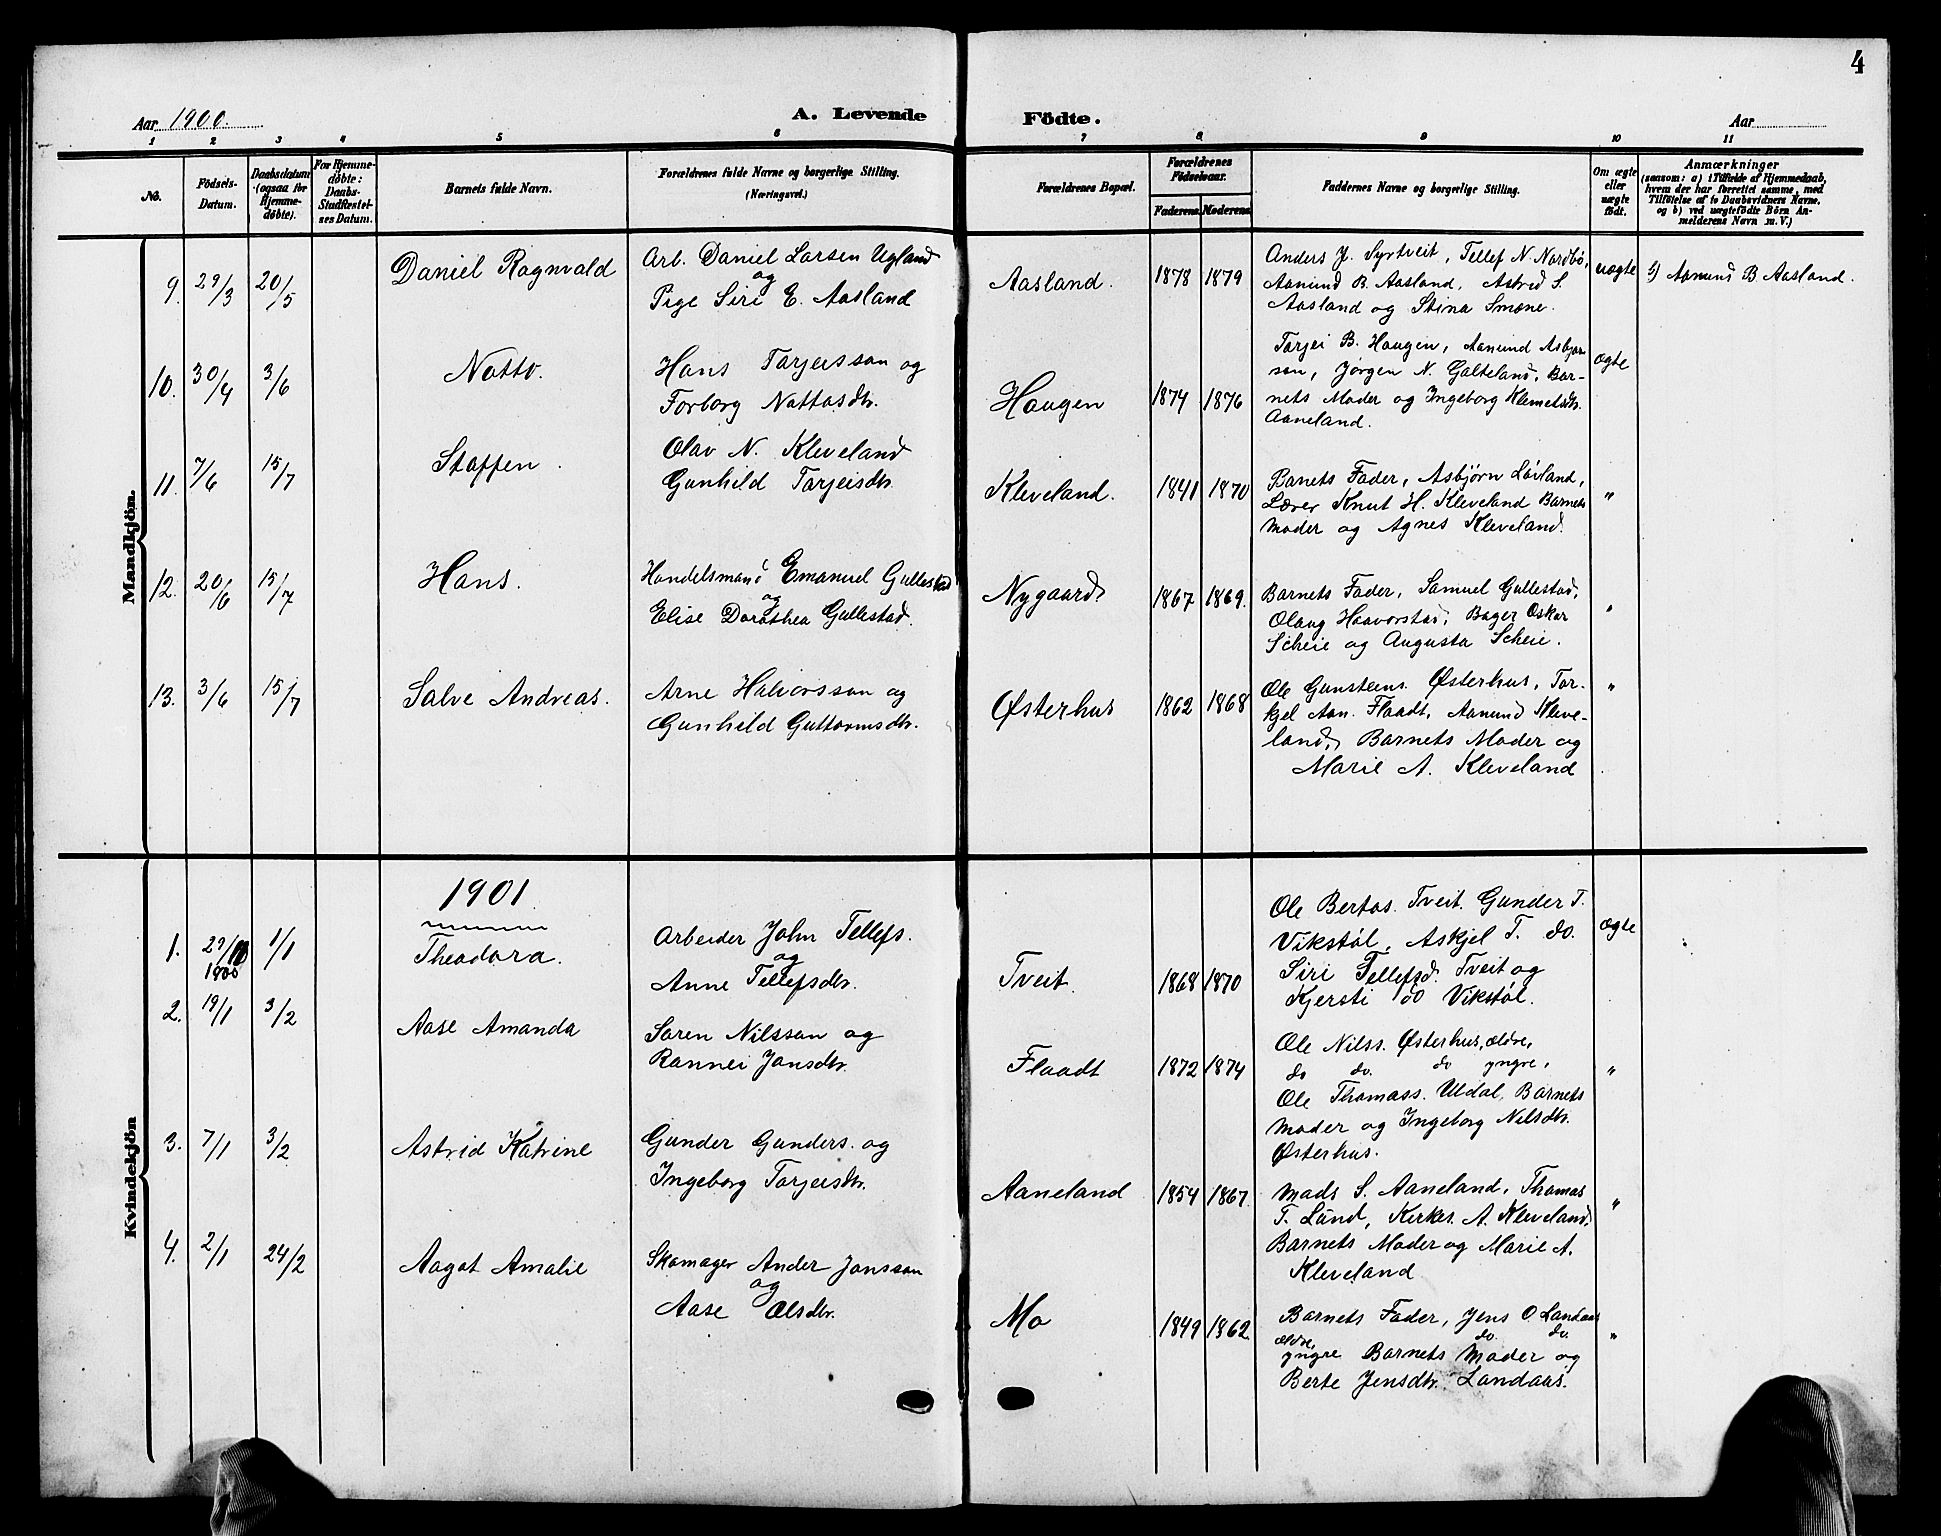 4
Aar 1900. A. Levende Födte. Aar
1 2 3 4 5 6 7 8 9 10 11
No.
Födsels-
Datum.
Daabsdatum
(ogsaa for
Hjemme-
døbte).
For Hjemme-
døbte:
Daabs-
Stadfæstel-
ses Datum.
Barnets fulde Navn.
Forældrenes fulde Navne og borgerlige Stilling.
(Næringsvei.)
Forældrenes Bopæl.
Forældrenes
Fødselsaar.
Faderens Moderens
Faddernes Navne og borgerlige Stilling.
Om ægte
eller
uægte
født.
Anmærkninger
(saasom: a) i Tilfælde af Hjemmedaab,
hvem der har forrettet samme, med
Tilføielse af to Daabsvidners Navne.
og b) ved uægtefødte Börn An-
melderens Navn m. V.)
Mandkjön.
9. 29/3 20/5 Daniel Ragnvald
Arb. Daniel Larsen Ugland
og
Pige Siri E. Aasland
Aasland. 1878 1879
Anders J. Syrtveit, Tellef N. Nordbø,
Aanund B. Aasland, Astrid S.
Aasland og Stina Smæne.
uægte
b) Aanund B. Aasland.
10. 30/4 3/6 Notto.
Hans Tarjeisson og
Torborg Nottosdtr.
Haugen 1874 1876
Tarjei B. Haugen, Aanund Asbjørn
son, Jørgen N. Galteland, Bar-
nets Moder og Ingeborg Klemetsdtr.
Aaneland.
ægte
11. 7/6 15/7 Staffen.
Olav N. Kleveland
Gunhild Tarjeisdtr.
Kleveland. 1841 1870
Banets Fader, Asbjørn Løvland,
Lærer Knut H. Kleveland Barnets
Moder og Agnes Kleveland.
"
12. 20/6 15/7 Hans.
Handelsmand Emanuel Gullestad
og
Elise Dorothea Gullestad.
Nygaard 1867 1869.
Barnets Fader, Samuel Gullestad,
Olaug Haavorstad, Bager Oskar
Scheie og Augusta Scheie.
"
13. 3/6 15/7 Salve Andreas.
Arne Halvorsson og
Gunhild Guttormsdtr.
Østerhus 1862 1868
Ole Gunsteens. Østerhus, Tor-
kjel Aan. Flaadt, Aanund Kleve-
land, Barnets Moder og
Marie A. Kleveland
"
Kvindekjön
1901.
1. 29/10 1900 1/1 Theodora.
Arbeider John Tellefs.
og
Anne Tellefsdtr.
Tveit. 1868 1870
Ole Bertos. Tveit. Gunder T.
Vikstøl, Askjel T. do.
Siri Tellefsd. Tveit og
Kjersti do Vikstøl.
ægte
2. 19/1 3/2 Aase Amanda
Søren Nilsson og
Rannei Jonsdtr.
Flaadt 1872 1874
Ole Nilss. Østerhus, ældre,
do do. do yngre,
Ole Thomass. Uldal, Barnets
Moder og Ingeborg Nilsdtr.
Østerhus.
"
3. 7/1 3/2 Astrid Katrine
Gunder Gunders. og
Ingeborg Tarjeisdtr.
Aaneland 1854 1867.
Mads S. Aaneland, Thomas
T. Lund, Kirkes. A. Kleveland,
Barnets Moder og Marie A.
Kleveland
"
4. 2/1 24/2 Aagot Amalie
Skomager Ander Jonsson
og
Aase Olsdtr.
Mo 1849 1862.
Barnets Fader, Jens O. Landaas
ældre, do. do.
yngre Barnets Moder og
Berte Jensdtr. Landaas.
"